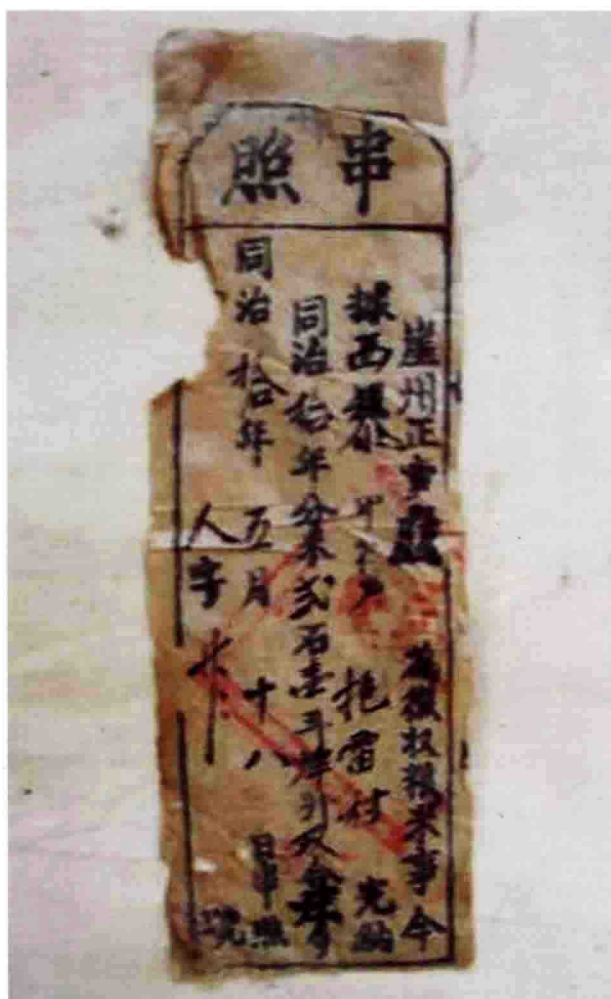 串照
崖州正堂 為徵收糧米事今
據西 抱雷村 完納
同治拾年分米貳石壹斗肆升
同治拾年 五月 十八 日串照
人字 號